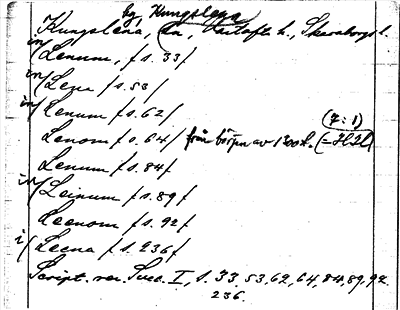 Eg. Kungslena
Kungslena, sn, Vartofta h., Skaraborgs l.
in/ Lenum, /s. 33/
in/ Lena /s. 53/
in/ Lenum /s. 62/
(7:1)
Lenom /s. 64/ från början av 1300t. (=HSH)
Lenum /s. 84/
in/ Leinum /s. 89/
Leenom /s. 92/
i/ Leena /s. 236/
Script. rer. Suec. I, s. 33, 53, 62, 64, 84, 89, 92
236.